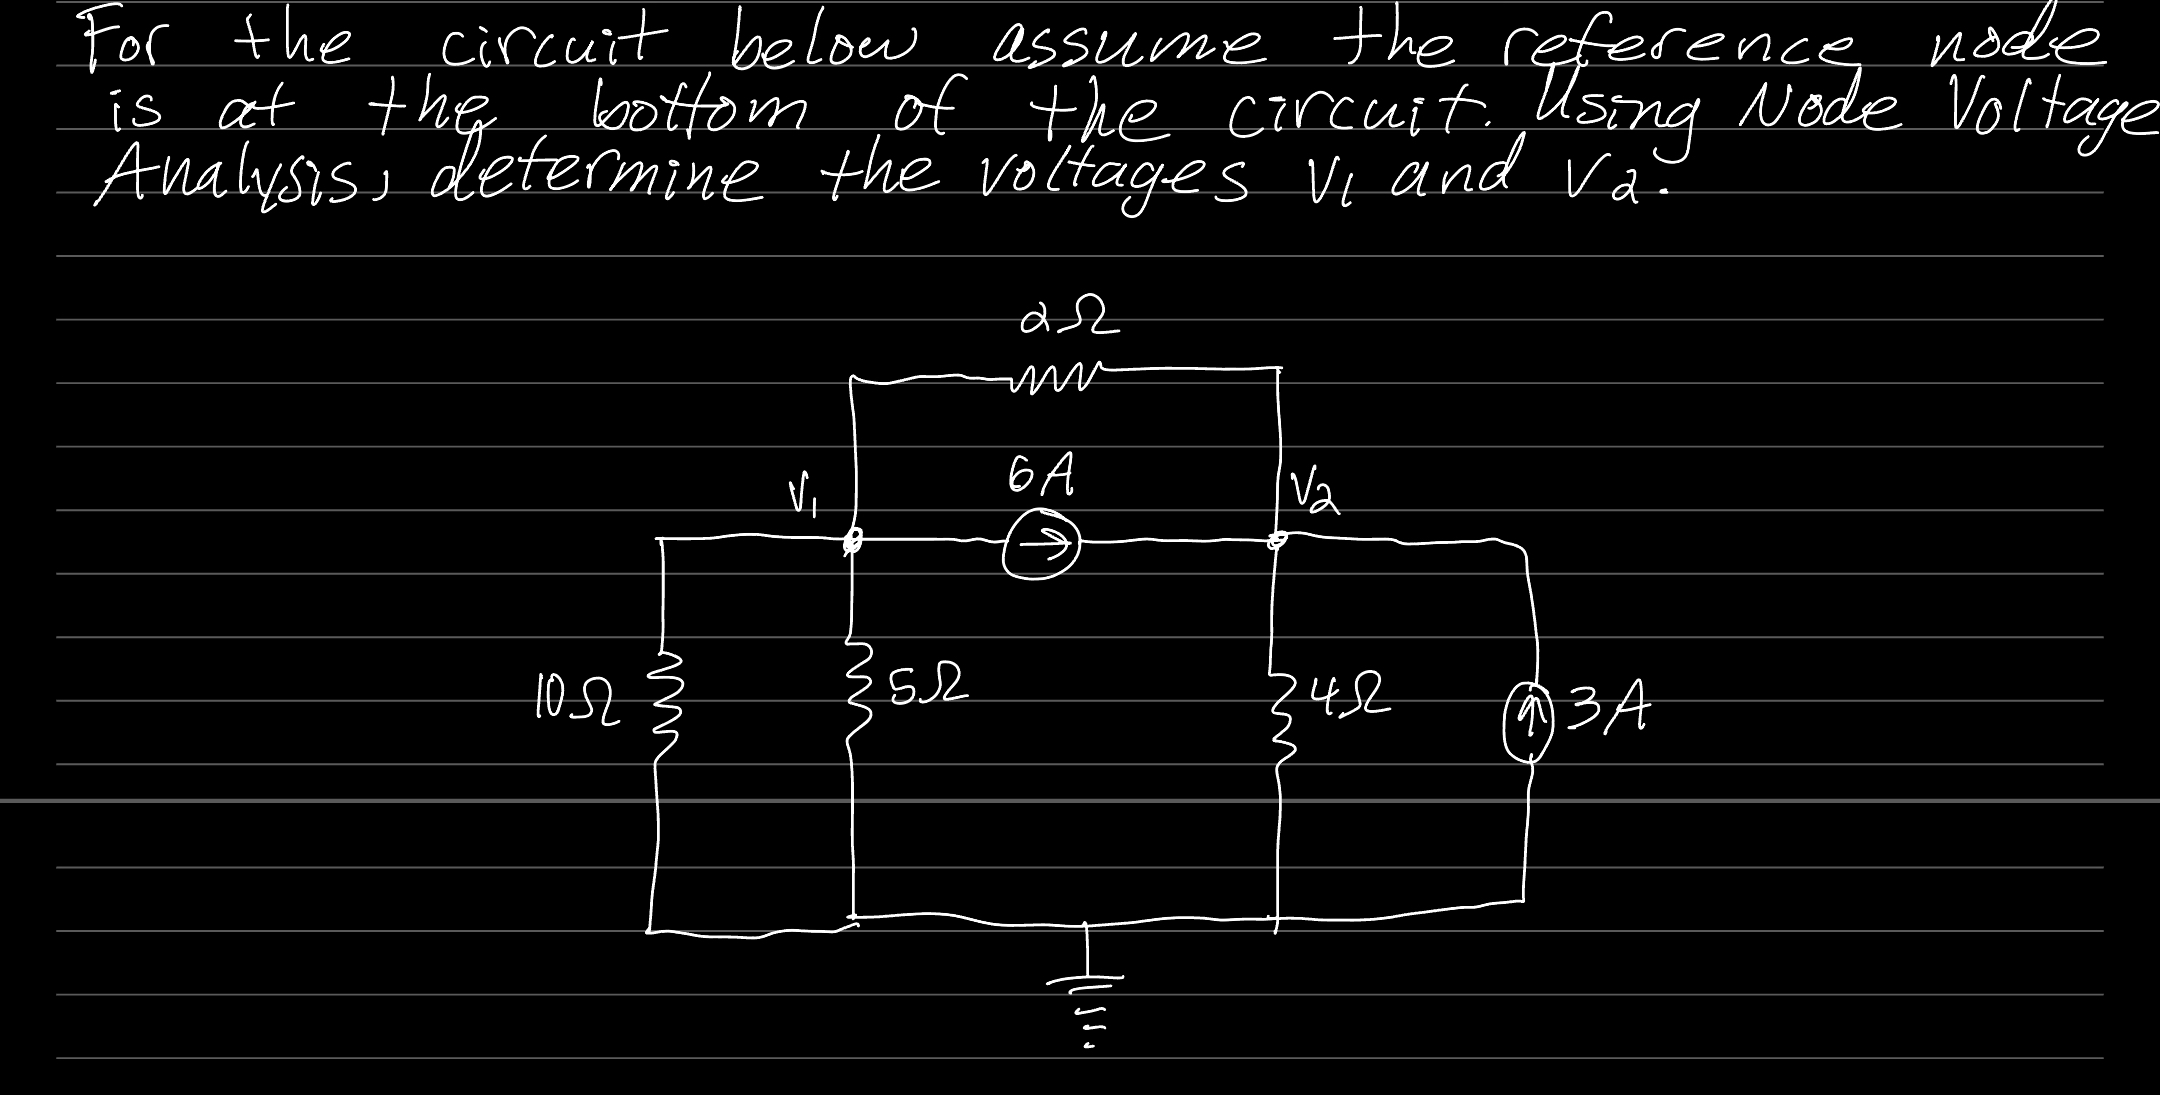 For the circuit below assume the reference node
is at the bottom of the circuit. Using Node Voltage
Analysis, determine the voltages V1 and V2.
2Ω
6A
V1
V2
10Ω
5Ω
4Ω
3A